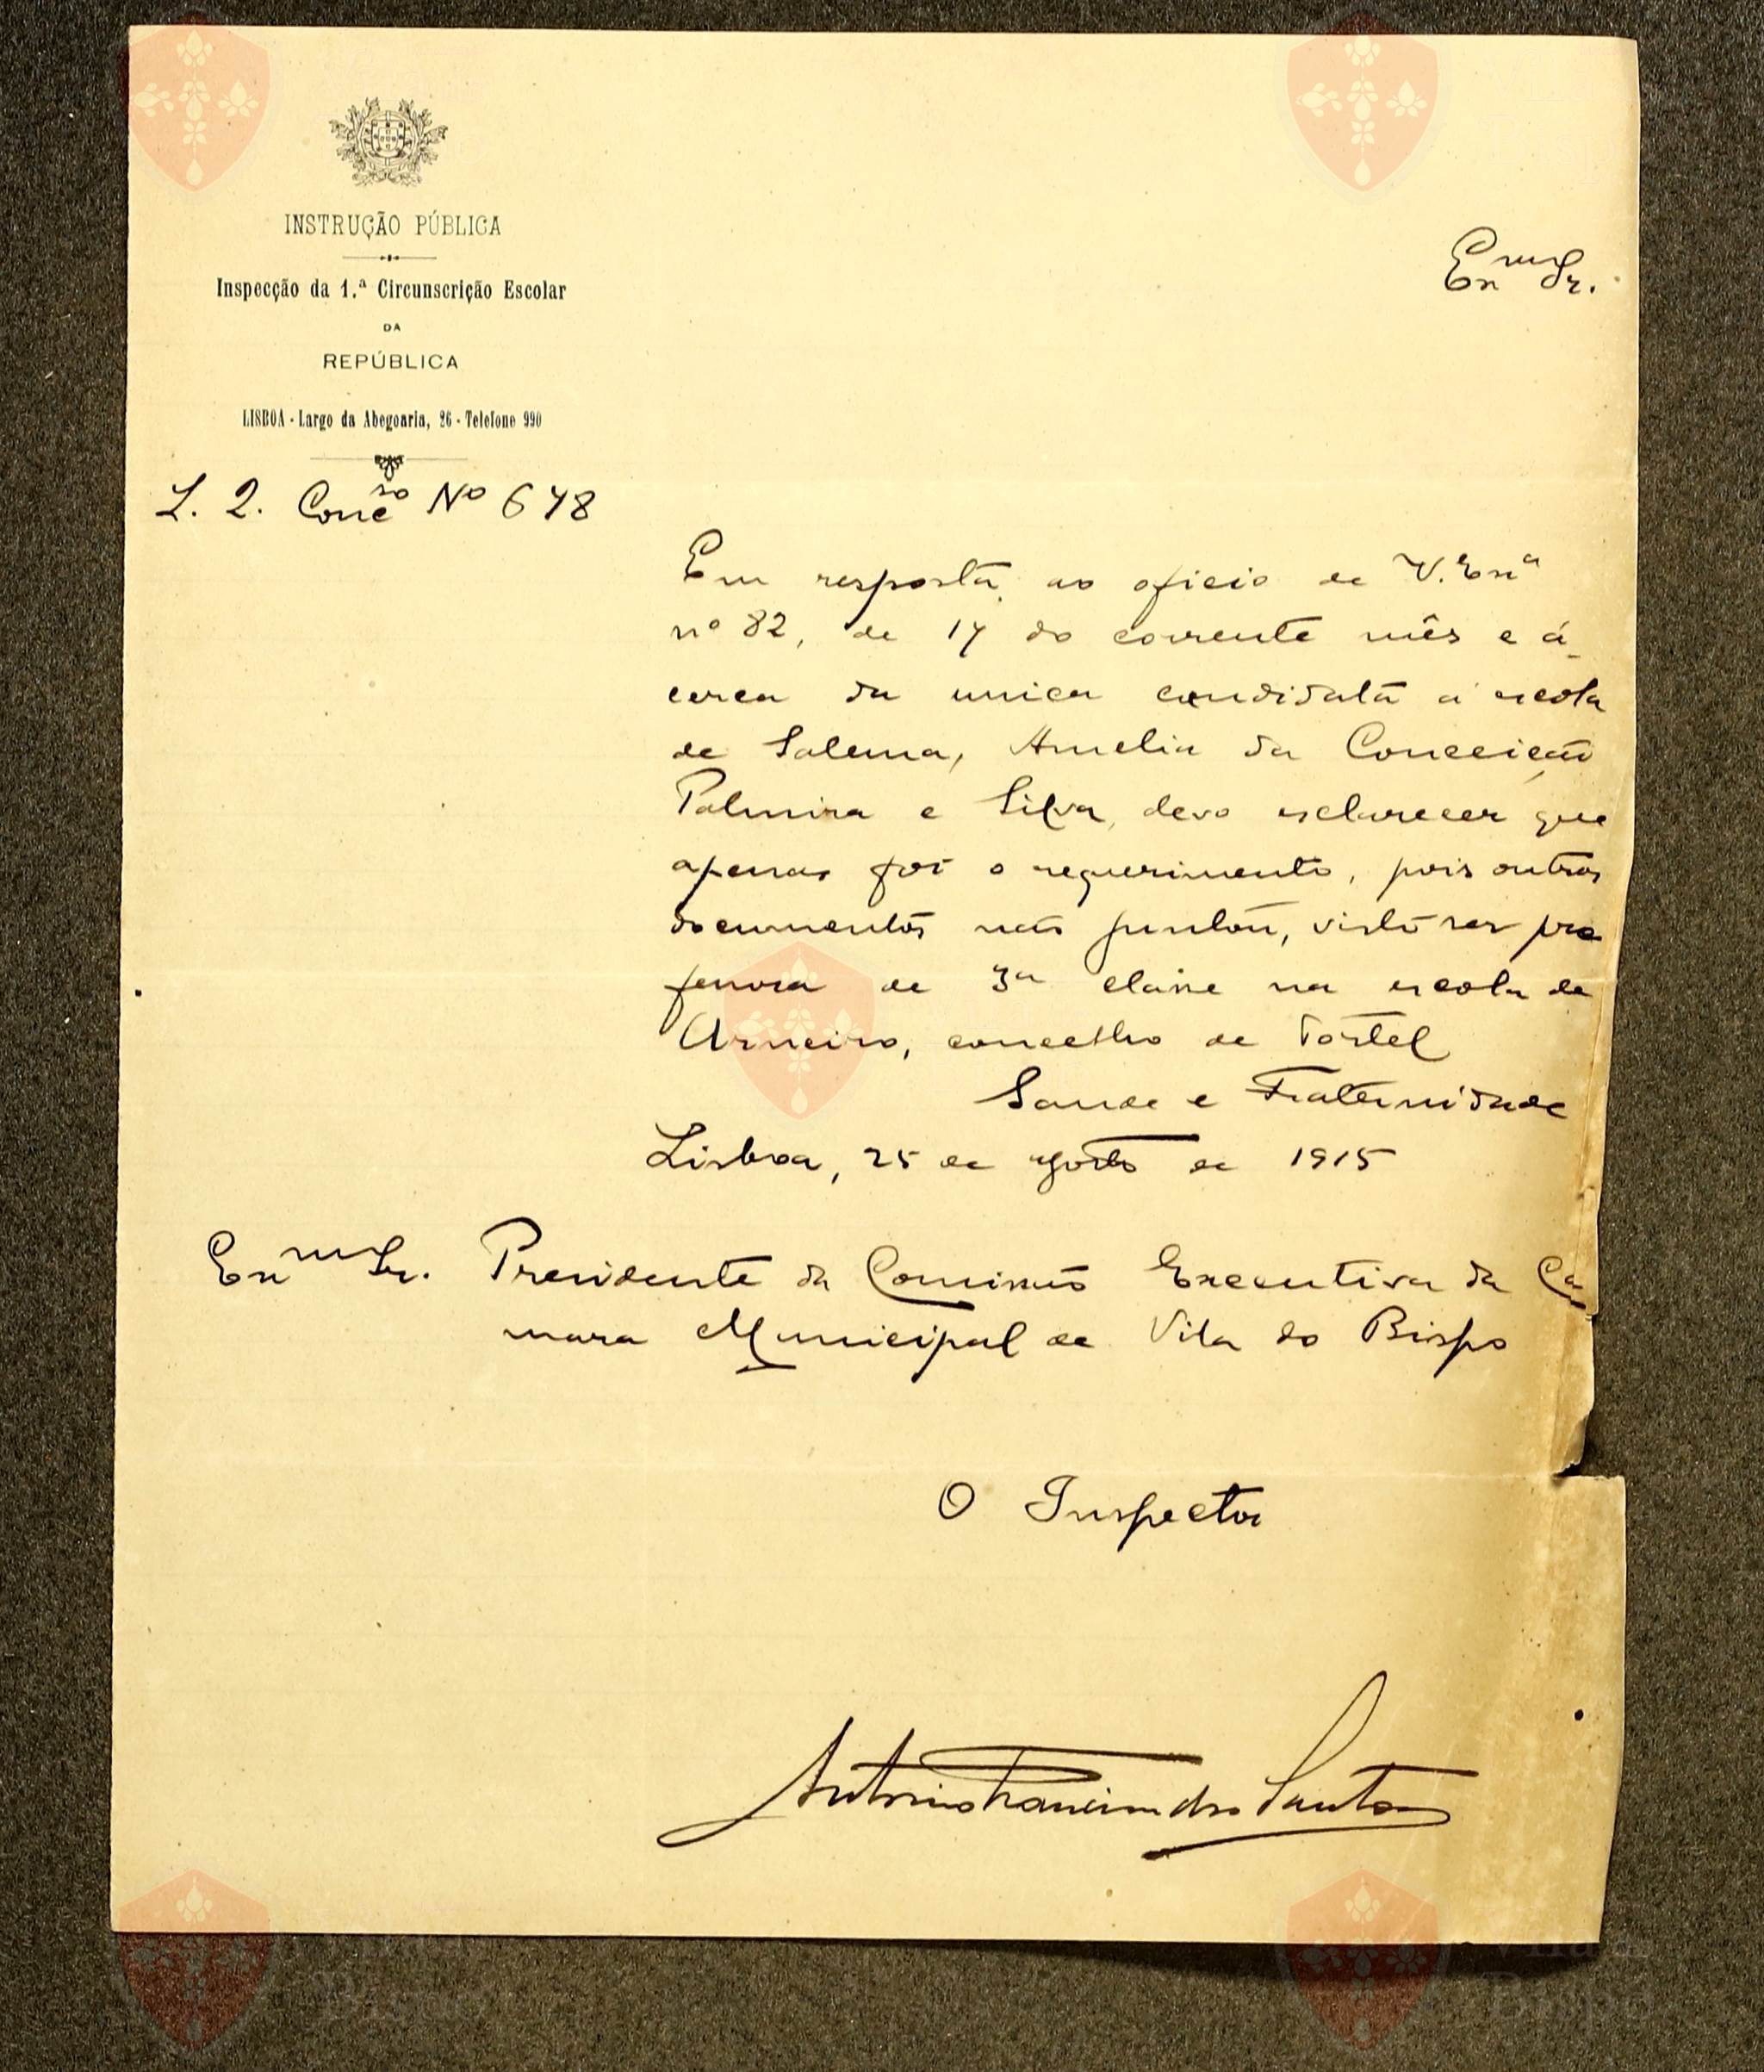 INSTRUÇÃO PÚBLICA
Inspecção da 1.ª Circunscrição Escolar
DA
REPÚBLICA
LISBOA - Largo da Abegoaria, 26 - Telefone 990
L. 2. Concso Nº 678
Exmo Sr.
Em resposta ao oficio de V. Exª
nº 82, de 17 do corrente mês e á-
cerca da unica candidata á escola
de Salema, Amelia da Conceição
Palmira e Silva, devo esclarecer que
apenas foi o requerimento, pois outros
documentos não juntou, visto ser pro
fessora de 3ª classe na escola de
Arneiro, concelho de Portel
Saude e Fraternidade
Lisboa, 25 de agosto de 1915
Exmo Sr. Presidente da Comissão Executiva da Ca
mara Municipal de Vila do Bispo
O Inspector
Antonio dos Santos
Bispo
Vila do
Bispo